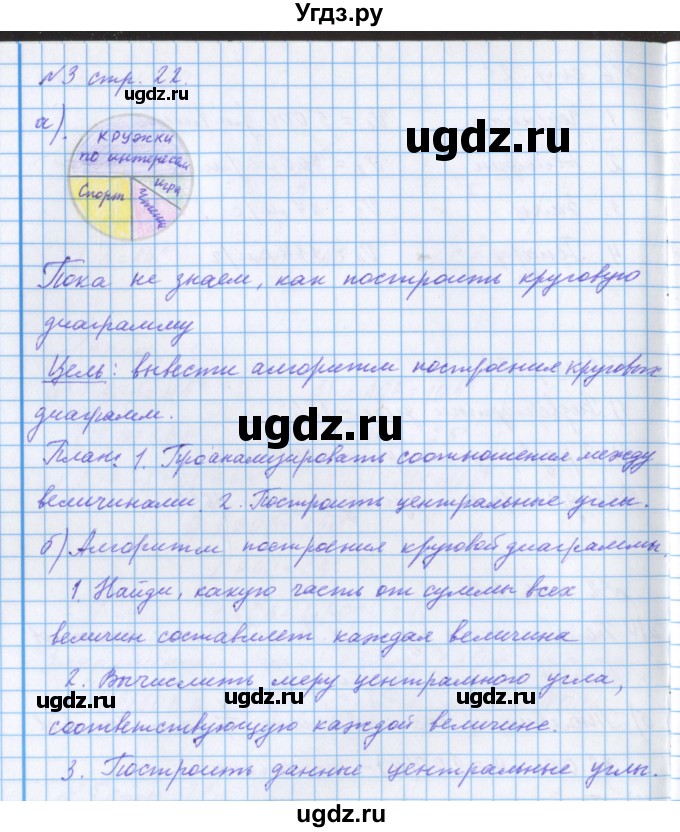 Угдз.ру
№3 стр. 22.
ugdz.ru
а).
ugdz.ru
Кружки
по интересам
Спорт
Чтение
Игра
Пока не знаем, как построить круговую
диаграмму
Цель: вывести алгоритм построения круговых
диаграмм.
ugdz.ru
План: 1. Проанализировать соотношения между
величинами. 2. Построить центральные углы.
б) Алгоритм построения круговой диаграммы.
1. Найди, какую часть от суммы всех
величин составляет каждая величина
2. Вычислить меру центрального угла,
ugdz.ru
ugdz.ru
соответствующую каждой величине.
3. Построить данные центральные углы.
ugdz.ru